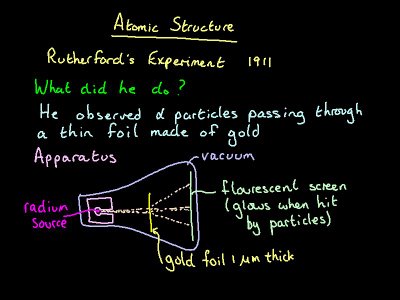 Atomic Structure
Rutherford's Experiment 1911
What did he do?
He observed α particles passing through
a thin foil made of gold
Apparatus
vacuum
radium
source
flourescent screen
(glows when hit
by particles)
gold foil 1 μm thick